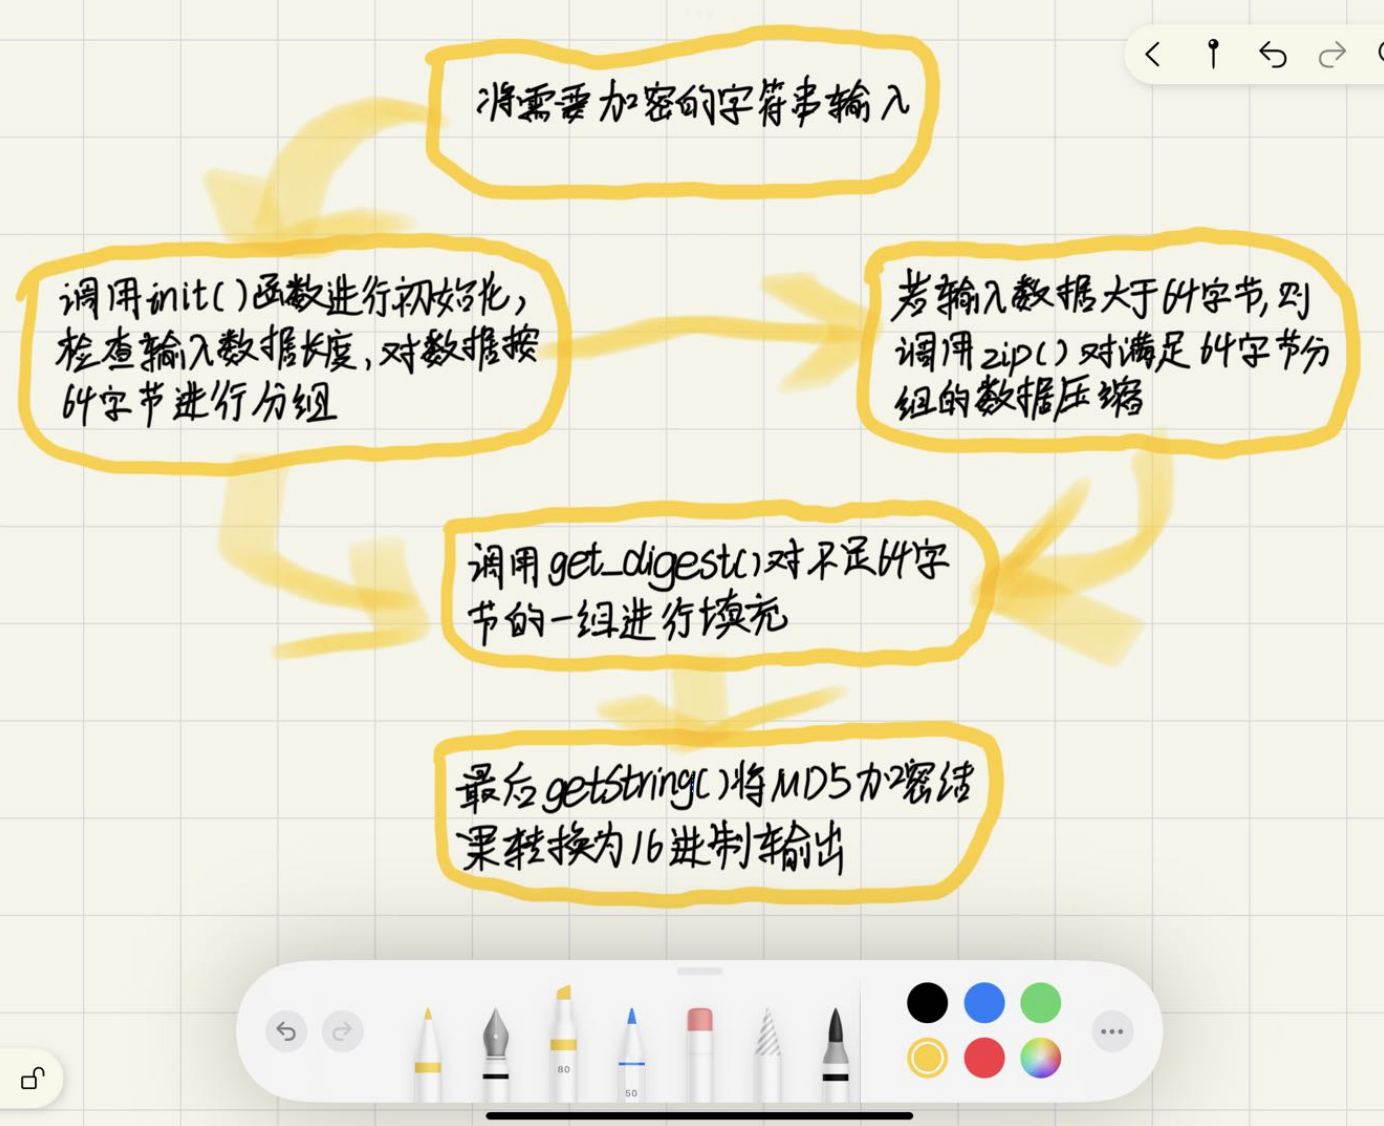 将需要加密的字符串输入
调用init()函数进行初始化,
检查输入数据长度,对数据按
64字节进行分组
若输入数据大于64字节,则
调用zip()对满足64字节分
组的数据压缩
调用get_digest()对不足64字
节的一组进行填充
最后getString()将MD5加密结
果转换为16进制输出
80
50